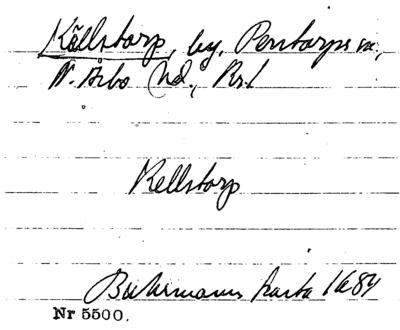 Källstorp, by, Pentorps sn,
N. Åsbo hd., Krl
Kellstorp
Buhrmanns karta 1684
Nr 5500.